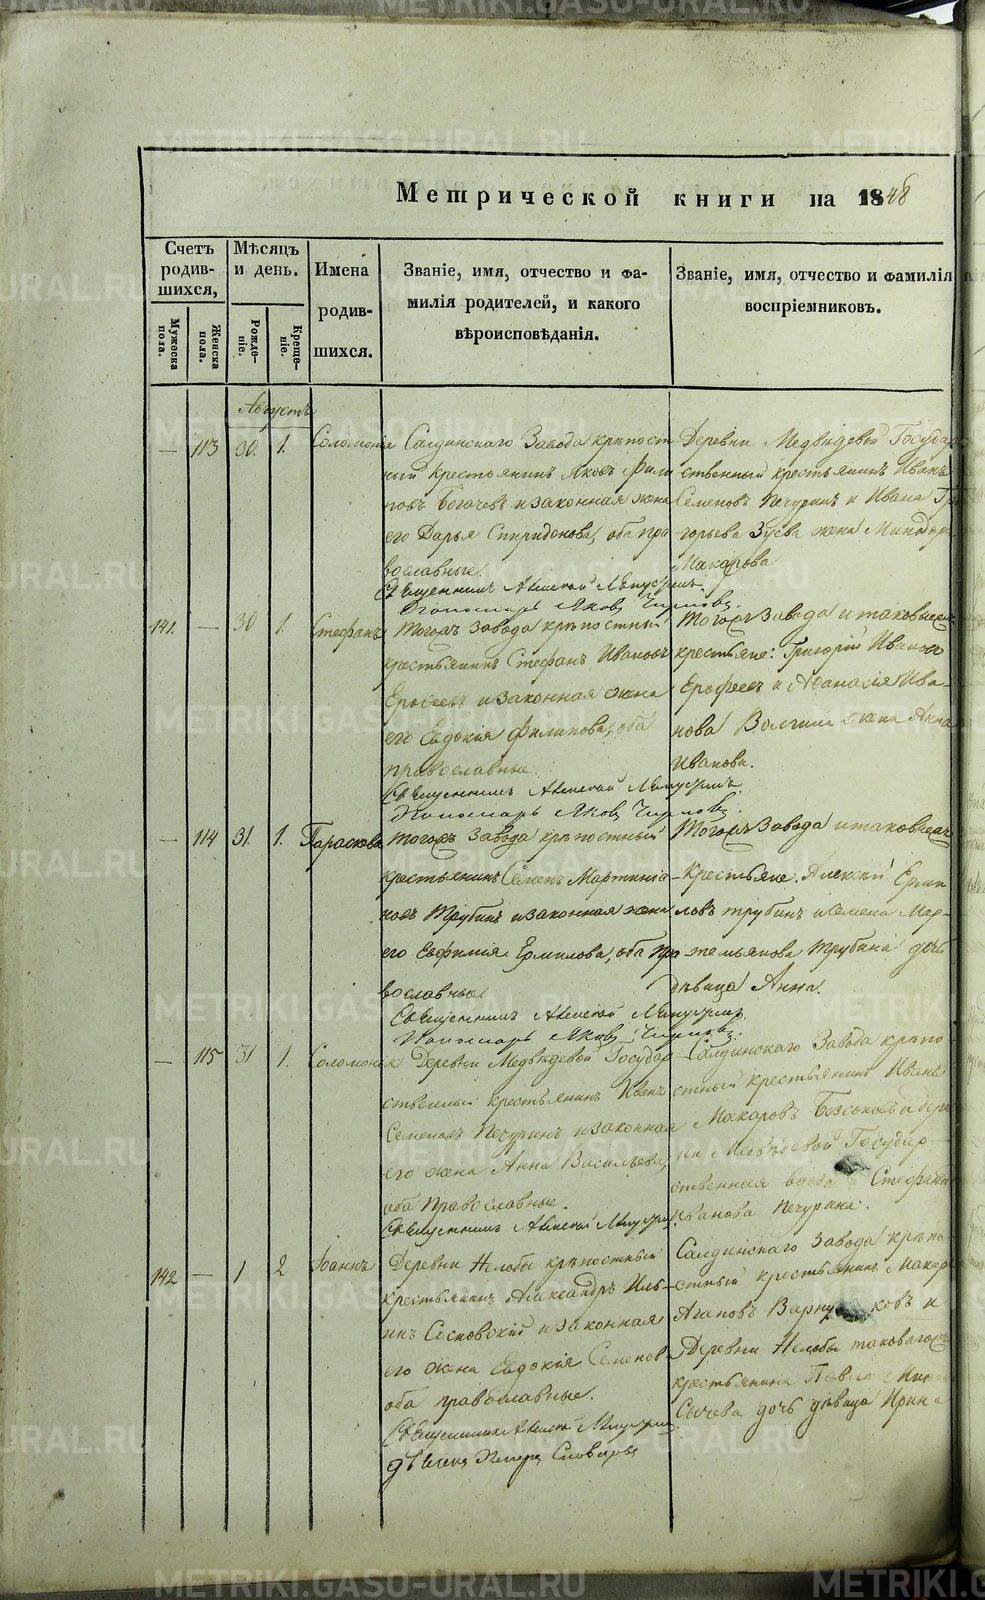 Метрической книги на 1848
Счетъ родив-шихся,
Мѣсяцъ и день.
Имена родив-шихся.
Званіе, имя, отчество и фа-
милія родителей, и какого
вѣроисповѣданія.
Званіе, имя, отчество и фамилія
воспріемниковъ.
Мужеска пола.
Женска пола.
Рожде-ніе.
Креще-ніе.
Августъ
— 113 30. 1. Соломонія
Салдинскаго Завода крѣпост
ный крестьянинъ Яковъ Фили
повъ Богачевъ и законная жена
его Дарья Спиридонова, оба пра
вославные.
Священникъ Алексей
Пономарь Яковъ
Деревни Медвѣдевой Государ
ственный крестьянинъ Иванъ
Семеновъ Печуринъ и Ивана Гри
горьева Зуева жена Минодора
Макарова
141. — 30 1. Стефанъ
Тогожъ Завода крѣпостный
крестьянинъ Стефанъ Ивановъ
Ерофеевъ и законная жена
его Евдокія Филипова, оба
православные.
Священникъ Алексей
Пономарь Яковъ
Тогожъ Завода и таковыежъ
крестьяне: Григорій Ивановъ
Ерофеевъ и Афанасія Ива-
нова Волгина жена Анна
Иванова.
— 114 31. 1. Параскева
Тогожъ Завода крѣпостный
крестьянинъ Семенъ Мартиніа-
новъ Трубинъ и законная жена
его Евфимія Ермилова, оба пра
вославные.
Священникъ Алексей
Пономарь Яковъ
Тогожъ Завода и таковыежъ
Крестьяне: Алексій Ерми
ловъ Трубинъ и Семена Мар-
темьянова Трубина дочь
дѣвица Анна.
— 115 31 1. Соломонія
Деревни Медвѣдевой Государ
ственный крестьянинъ Иванъ
Семеновъ Печуринъ и законная
его жена Анна Васильева,
оба Православные.
Священникъ Алексей
Салдинскаго Завода крѣпо
стный крестьянинъ Иванъ
Макаровъ и дерев
ни Медвѣдевой Государ
ственная вдова Стефанида
Иванова Печурина.
142 — 1 2 Іоаннъ
Деревни Нелобы крѣпостный
крестьянинъ Александръ Иль-
инъ Сосновскій и законная
его жена Евдокія Семенова
оба православные.
Священникъ Алексей
Салдинскаго Завода крѣпо
стный крестьянинъ Макаръ
Агаповъ и
Деревни Нелобы таковагожъ
крестьянина Павла
Сычева дочь дѣвица Ирина
METRIKI.GASO-URAL.RU